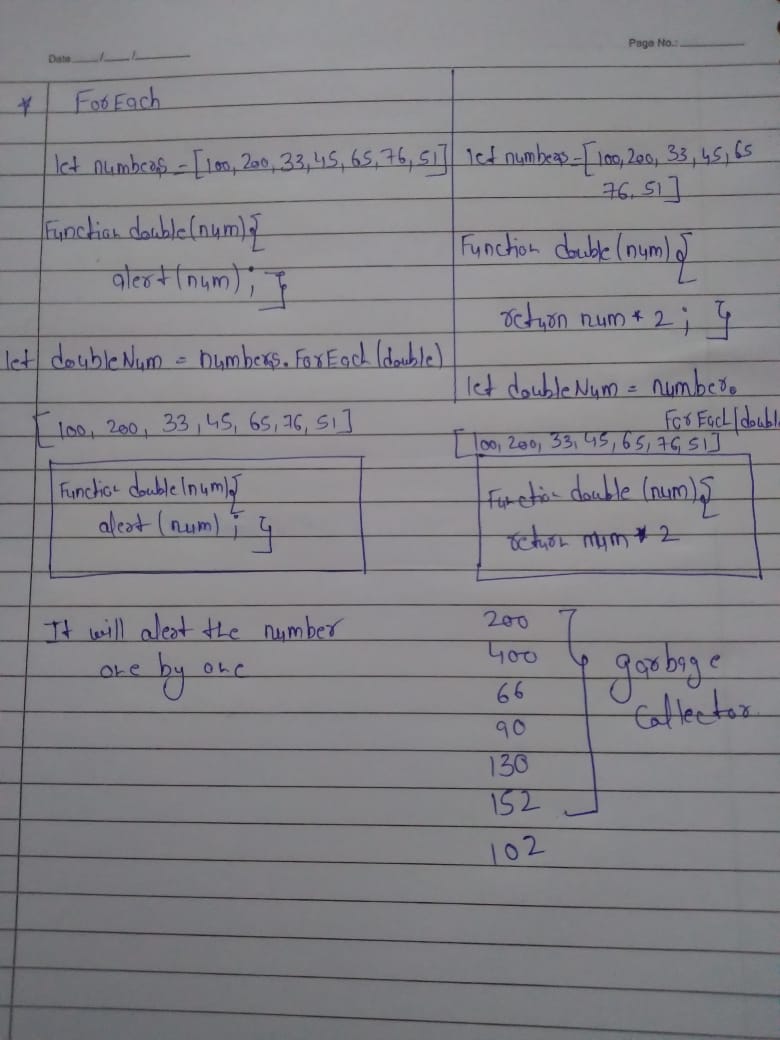 Date ___/___/______
Page No.: ________
* ForEach
let numbers = [100, 200, 33, 45, 65, 76, 51]
Function double(num){
alert(num); }
let doubleNum = numbers.ForEach(double)
[100, 200, 33, 45, 65, 76, 51]
Function double(num){
alert (num) ; }
It will alert the number
one by one
let numbers = [100, 200, 33, 45, 65
76, 51]
Function double (num){
return num * 2 ; }
let doubleNum = number.
ForEach(doubl
[100, 200, 33, 45, 65, 76, 51]
Function double (num){
return num * 2
200
400
66
90
130
152
102
garbage
Collector